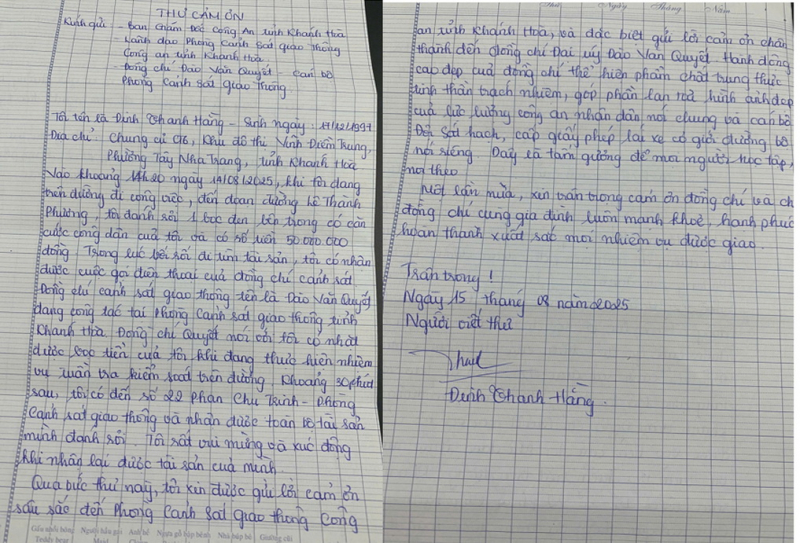 THƯ CẢM ƠN
Kính gửi: - Ban Giám Đốc Công An tỉnh Khánh Hoà
- Lãnh đạo Phòng Cảnh Sát giao Thông
Công an tỉnh Khánh Hoà
- Đồng chí Đào Văn Quyết - Cán bộ
Phòng Cảnh Sát giao Thông
Tôi tên là Đinh Thanh Hằng - Sinh ngày: 17/12/1997
Địa chỉ: Chung cư CT6, Khu đô thị Vĩnh Điềm Trung,
Phường Tây Nha Trang, tỉnh Khánh Hoà
Vào khoảng 14h20 ngày 14/08/2025, khi tôi đang
trên đường đi công việc, đến đoạn đường Lê Thành
Phương, tôi đánh rơi 1 bọc đen bên trong có căn
cước công dân của tôi và có số tiền 50.000.000
đồng. Trong lúc bối rối đi tìm tài sản, tôi có nhận
được cuộc gọi điện thoại của đồng chí cảnh sát
Đồng chí cảnh sát giao thông tên là Đào Văn Quyết,
đang công tác tại Phòng Cảnh Sát giao thông tỉnh
Khánh Hoà. Đồng chí Quyết nói với tôi có nhặt
được bọc tiền của tôi khi đang thực hiện nhiệm
vụ tuần tra kiểm soát trên đường. Khoảng 30 phút
sau, tôi có đến số 22 Phan Chu Trinh - Phòng
Cảnh sát giao thông và nhận được toàn bộ tài sản
mình đánh rơi. Tôi rất vui mừng và xúc động
khi nhận lại được tài sản của mình.
Qua bức thư này, tôi xin được gửi lời cảm ơn
sâu sắc đến Phòng Cảnh Sát giao thông Công
Gấu nhồi bông Người hầu gái Anh bé Ngựa gỗ bập bênh Nhà búp bê Giường cũi
Teddy bear Maid
Thứ Ngày Tháng Năm
an tỉnh Khánh Hoà, và đặc biệt gửi lời cảm ơn chân
thành đến đồng chí Đại uý Đào Văn Quyết. Hành động
cao đẹp của đồng chí thể hiện phẩm chất trung thực
tinh thần trách nhiệm, góp phần lan toả hình ảnh đẹp
của lực lượng công an nhân dân nói chung và cán bộ
Đội Sát hạch, cấp giấy phép lái xe cơ giới đường bộ
nói riêng. Đây là tấm gương để mọi người học tập,
noi theo
Một lần nữa, xin trân trọng cám ơn đồng chí và ch
đồng chí cùng gia đình luôn mạnh khoẻ, hạnh phúc
hoàn thành xuất sắc mọi nhiệm vụ được giao.
Trân trọng!
Ngày 15 tháng 08 năm 2025
Người viết thư
Đinh Thanh Hằng.